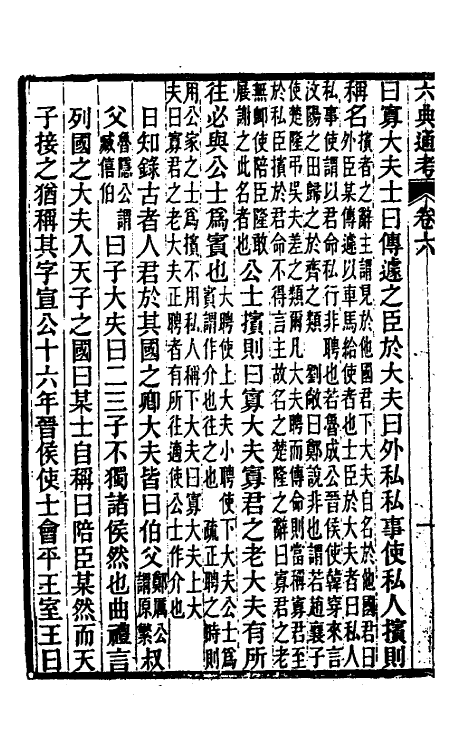 六典通考 卷六 一
曰寡大夫士曰傳遽之臣於大夫曰外私私事使私人擯則
稱名擯者之辭主謂見於他國君下大夫自名於他國君曰
外臣某傳遽以車馬給使者也士臣於大夫者曰私人
私事使謂以君命私行非聘也若魯成公晉侯使韓穿來言
汶陽之田歸之於齊之類 劉敞曰鄭說非也謂若趙襄子
使楚隆弔吳夫差之類爾凡大夫聘而傳命則當稱寡君至
於私臣擯於君命不得言主故名之楚隆之辭曰寡君之老
無卹使陪臣隆敢
展謝之此名者也公士擯則曰寡大夫寡君之老大夫有所
往必與公士爲賓也大聘使上大夫小聘使下大夫公士爲
賓謂作介也往之也 疏正聘之時則
用公家之士爲擯不用私人稱下大夫曰寡大夫上大
夫曰寡君之老大夫正聘者有所往適使公士作介也
日知錄古者人君於其國之卿大夫皆曰伯父鄭厲公謂原繁叔
父魯隱公謂臧僖伯曰子大夫曰二三子不獨諸侯然也曲禮言
列國之大夫入天子之國曰某士自稱曰陪臣某然而天
子接之猶稱其字宣公十六年晉侯使士會平王室王曰